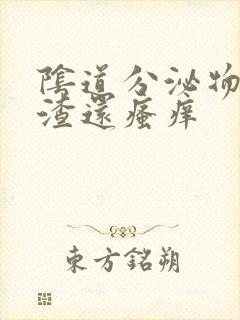 陰道分泌物
渣還瘙痒
東方銘朔